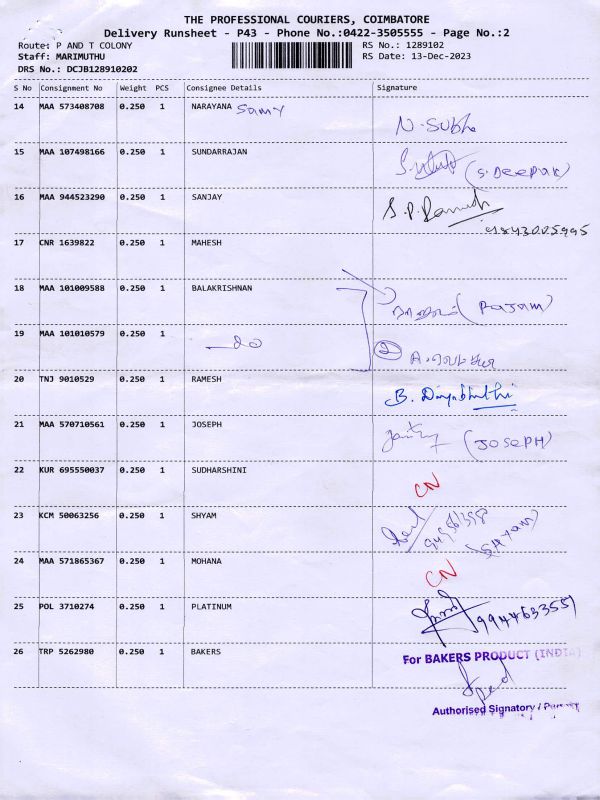 THE PROFESSIONAL COURIERS, COIMBATORE
Delivery Runsheet - P43 - Phone No.:0422-3505555 - Page No.:2
Route: P AND T COLONY
RS No.: 1289102
Staff: MARIMUTHU
RS Date: 13-Dec-2023
DRS No.: DCJB128910202
S No Consignment No Weight PCS Consignee Details Signature
14 MAA 573408708 0.250 1 NARAYANA Samy
N. Subha
15 MAA 107498166 0.250 1 SUNDARRAJAN
(S. Deepak)
16 MAA 944523290 0.250 1 SANJAY
S.P. Ramesh
9843005995
17 CNR 1639822 0.250 1 MAHESH
18 MAA 101009588 0.250 1 BALAKRISHNAN
(Rajam)
19 MAA 101010579 0.250 1 —do
2
20 TNJ 9010529 0.250 1 RAMESH
21 MAA 570710561 0.250 1 JOSEPH
(JOSEPH)
22 KUR 695550037 0.250 1 SUDHARSHINI
CN
23 KCM 50063256 0.250 1 SHYAM
(Shyam)
24 MAA 571865367 0.250 1 MOHANA
CN
25 POL 3710274 0.250 1 PLATINUM
9944633551
26 TRP 5262980 0.250 1 BAKERS
For BAKERS PRODUCT (INDIA)
Authorised Signatory /